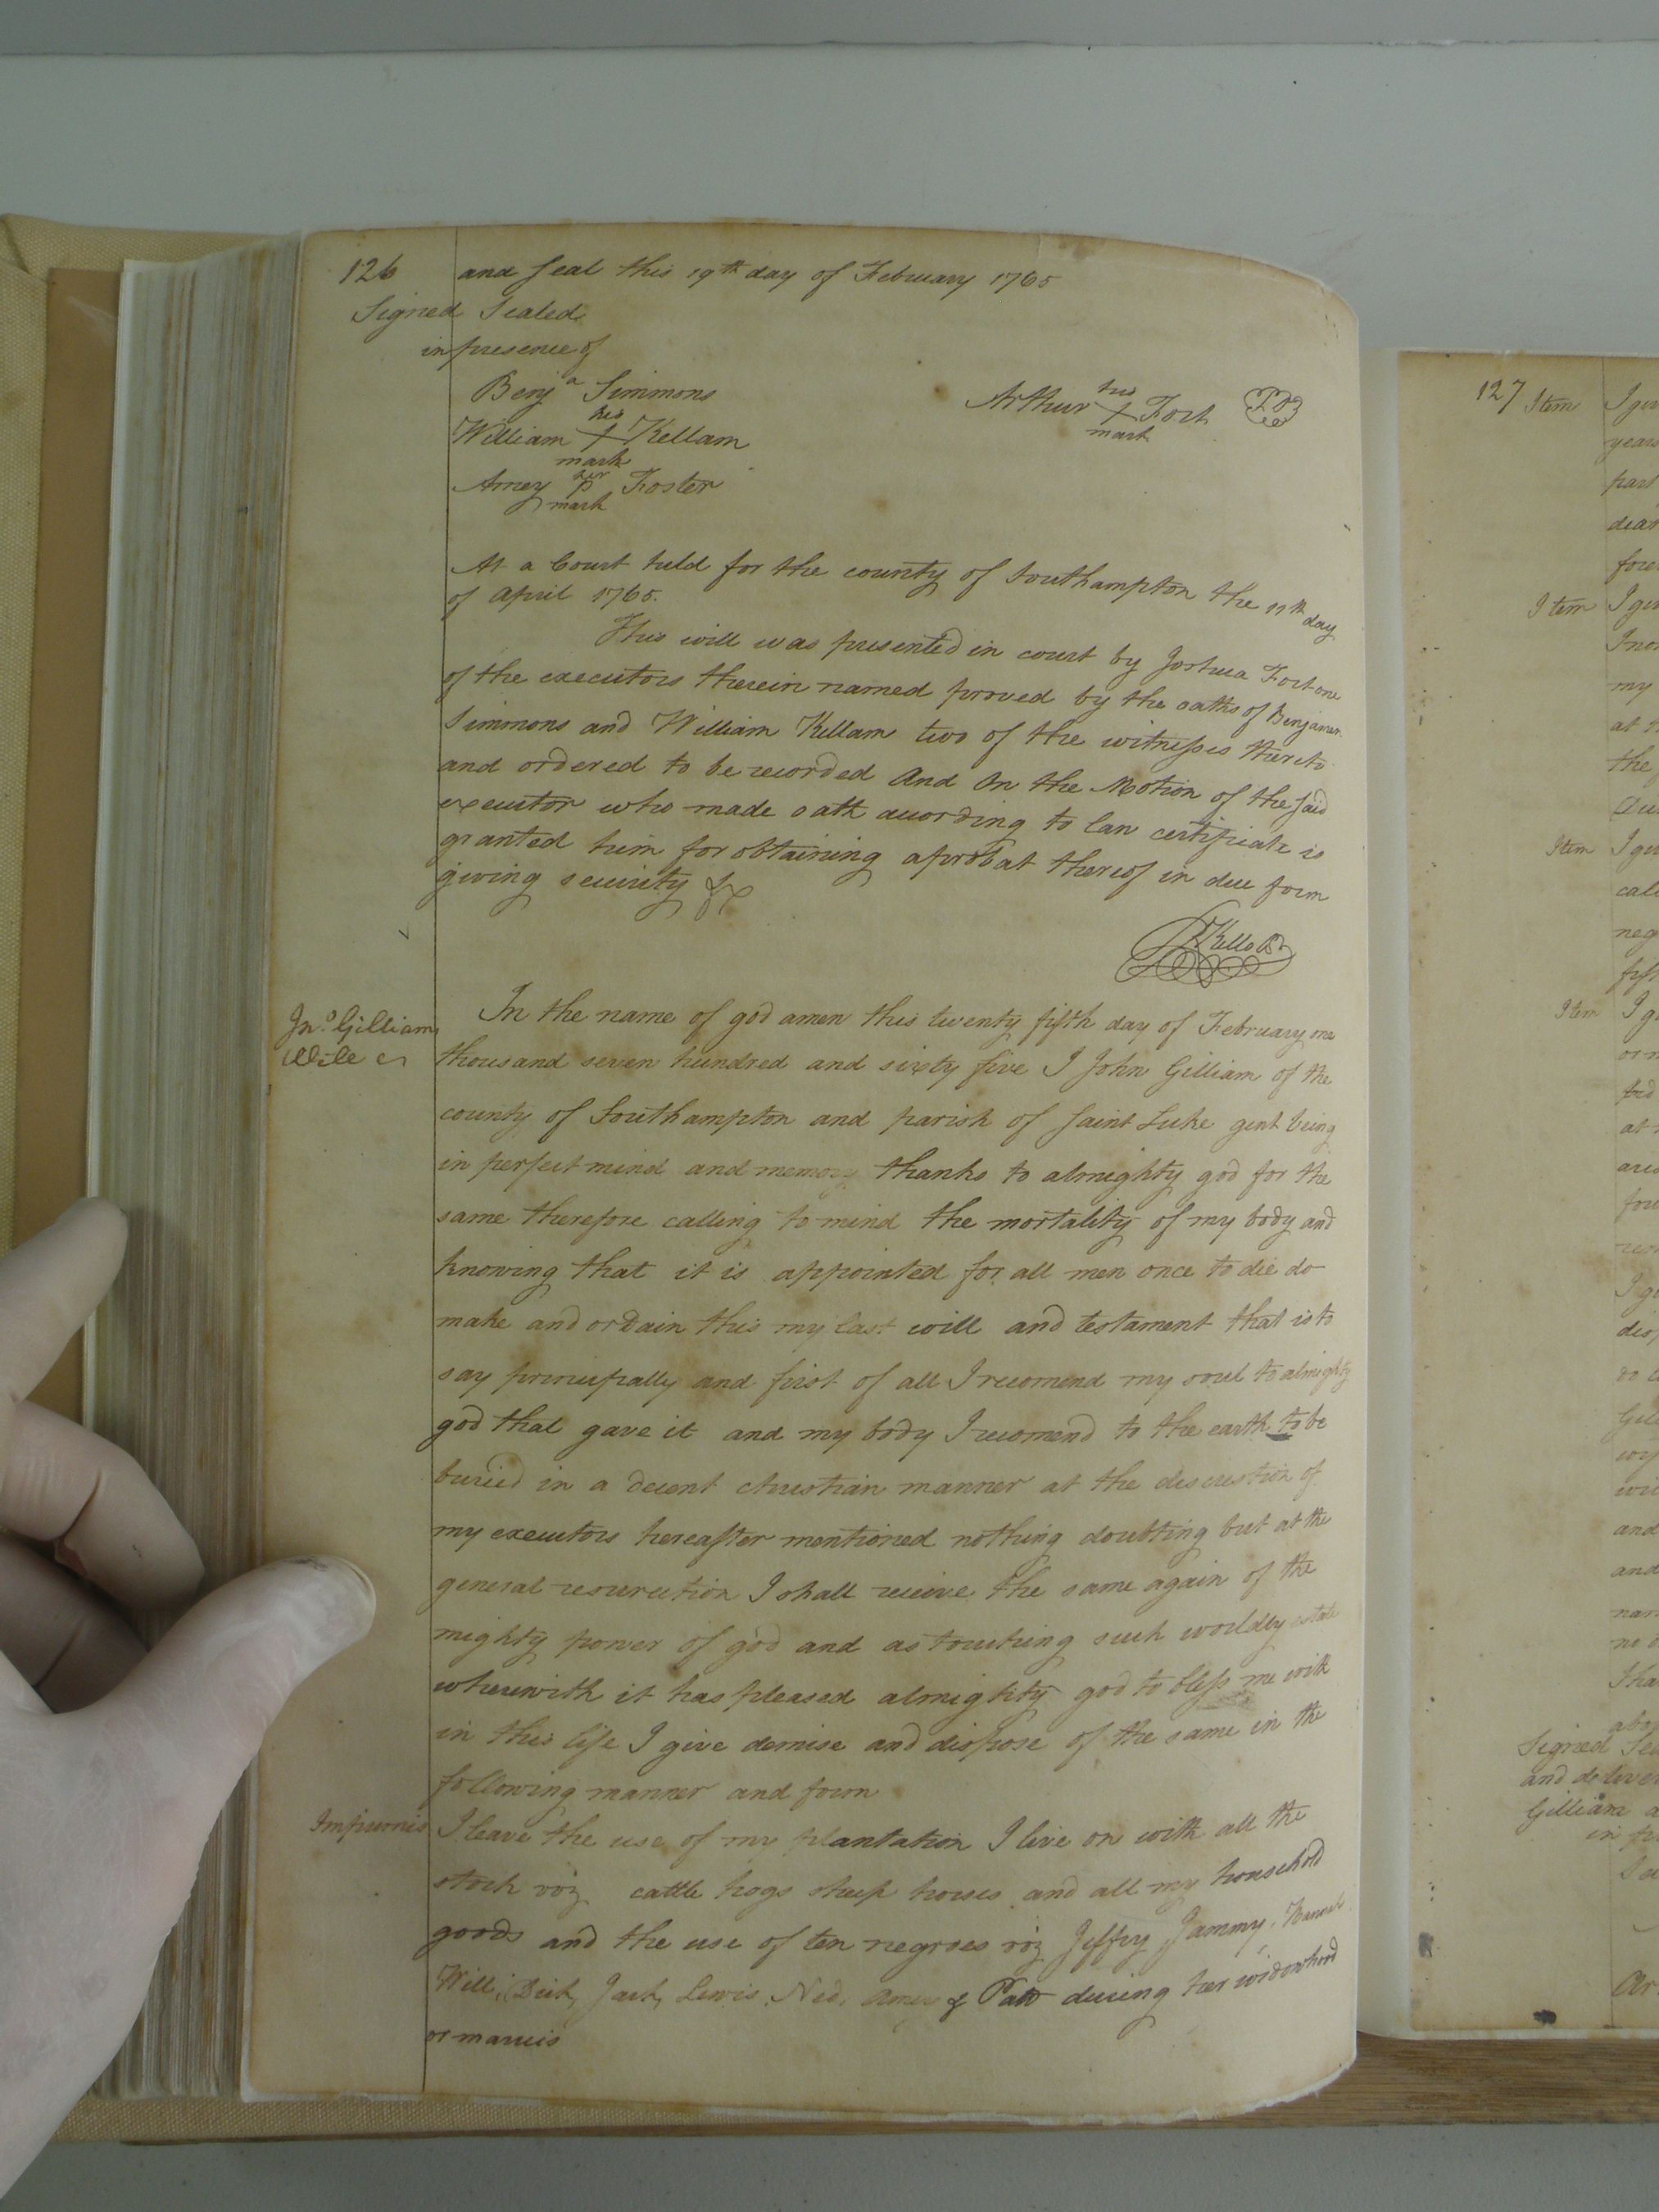 126
and seal this 19th day of February 1765
Signed Sealed
in presence of
Benja Simmons
his
William + Kellam
mark
her
Amey p Foster
mark
his
Arthur + Fort
mark
At a Court held for the county of Southampton the 11th day
of April 1765.
This will was presented in court by Joshua Fort one
of the executors therein named proved by the oaths of Benjamin
Simmons and William Kellam two of the witnesses thereto
and ordered to be recorded And On the Motion of the said
executor who made oath according to law certificate is
granted him for obtaining a probat thereof in due form
giving security &c
Kello
Jno Gilliams
Will
In the name of god amen this twenty fifth day of February one
thousand seven hundred and sixty five I John Gilliam of the
county of Southampton and parish of Saint Luke gent being
in perfect mind and memory thanks to almighty god for the
same therefore calling to mind the mortality of my body and
knowing that it is appointed for all men once to die do
make and ordain this my last will and testament that is to
say principally and first of all I recomend my soul to almighty
god that gave it and my body I recomend to the earth to be
buried in a decent christian manner at the discrestion of
my executors hereafter mentioned nothing doubting but at the
general resurection I shall receive the same again of the
mighty power of god and as touching such worldly estate
wherewith it has pleased almighty god to bless me with
in this life I give demise and dispose of the same in the
following manner and form
Impirmis
I leave the use of my plantation I live on with all the
stock viz cattle hogs sheep horses and all my household
goods and the use of ten negroes viz Jeffry, Jammy, Hannah
Will, Dick, Jack, Lewis, Ned, Amey & Patt during her widowhood
or marries
127
Item
years
part
Item
my
at
the
Item
Item
at
and
and
Signed
and deliver
Gilliam
in